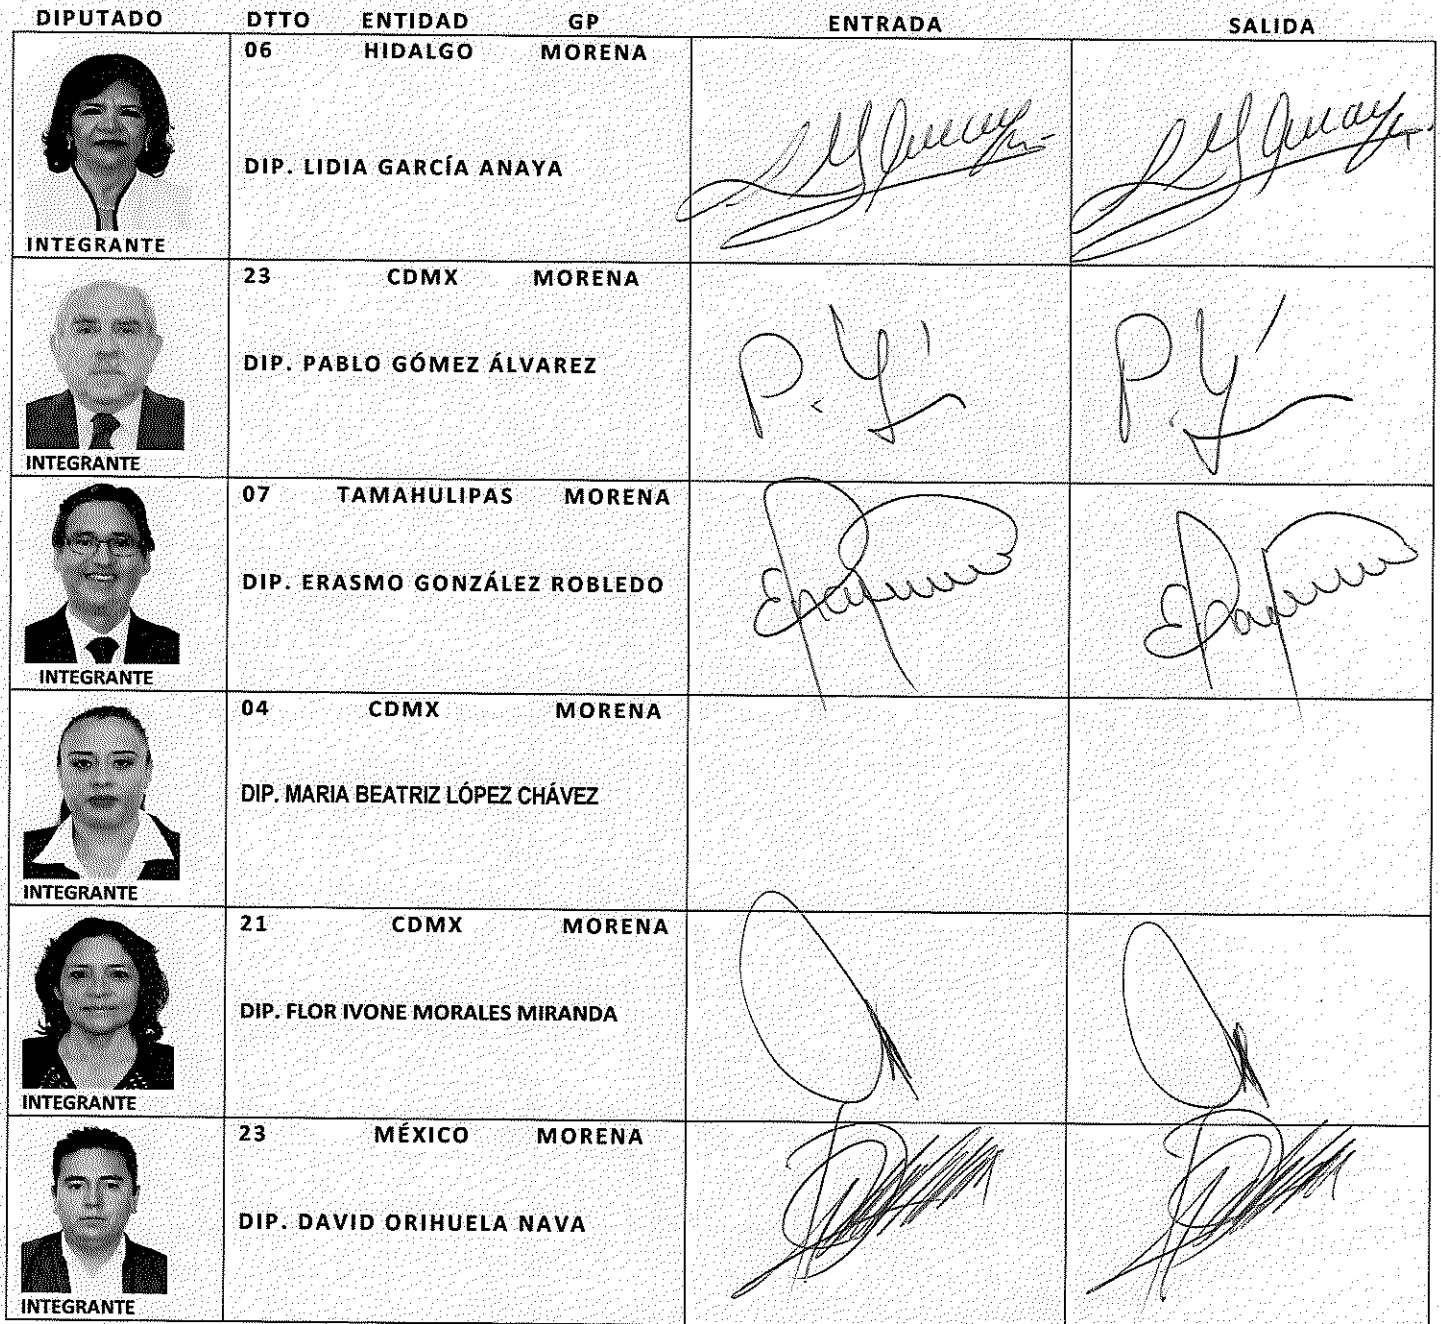 DIPUTADO DTTO ENTIDAD GP ENTRADA SALIDA
06 HIDALGO MORENA
DIP. LIDIA GARCÍA ANAYA
INTEGRANTE
23 CDMX MORENA
DIP. PABLO GÓMEZ ÁLVAREZ
INTEGRANTE
07 TAMAHULIPAS MORENA
DIP. ERASMO GONZÁLEZ ROBLEDO
INTEGRANTE
04 CDMX MORENA
DIP. MARIA BEATRIZ LÓPEZ CHÁVEZ
INTEGRANTE
21 CDMX MORENA
DIP. FLOR IVONE MORALES MIRANDA
INTEGRANTE
23 MÉXICO MORENA
DIP. DAVID ORIHUELA NAVA
INTEGRANTE